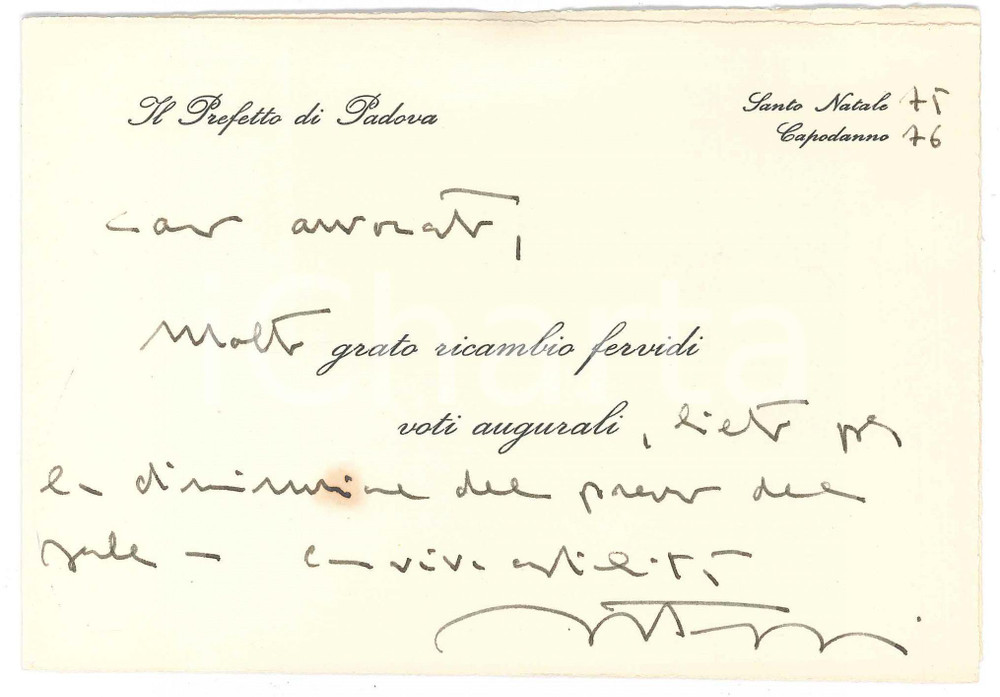 Il Prefetto di Padova
Santo Natale 75
Capodanno 76
Caro avvocato,
molto grato ricambio fervidi
voti augurali, lieto per
la diminuzione del prezzo del
con viva cordialità
iCharta